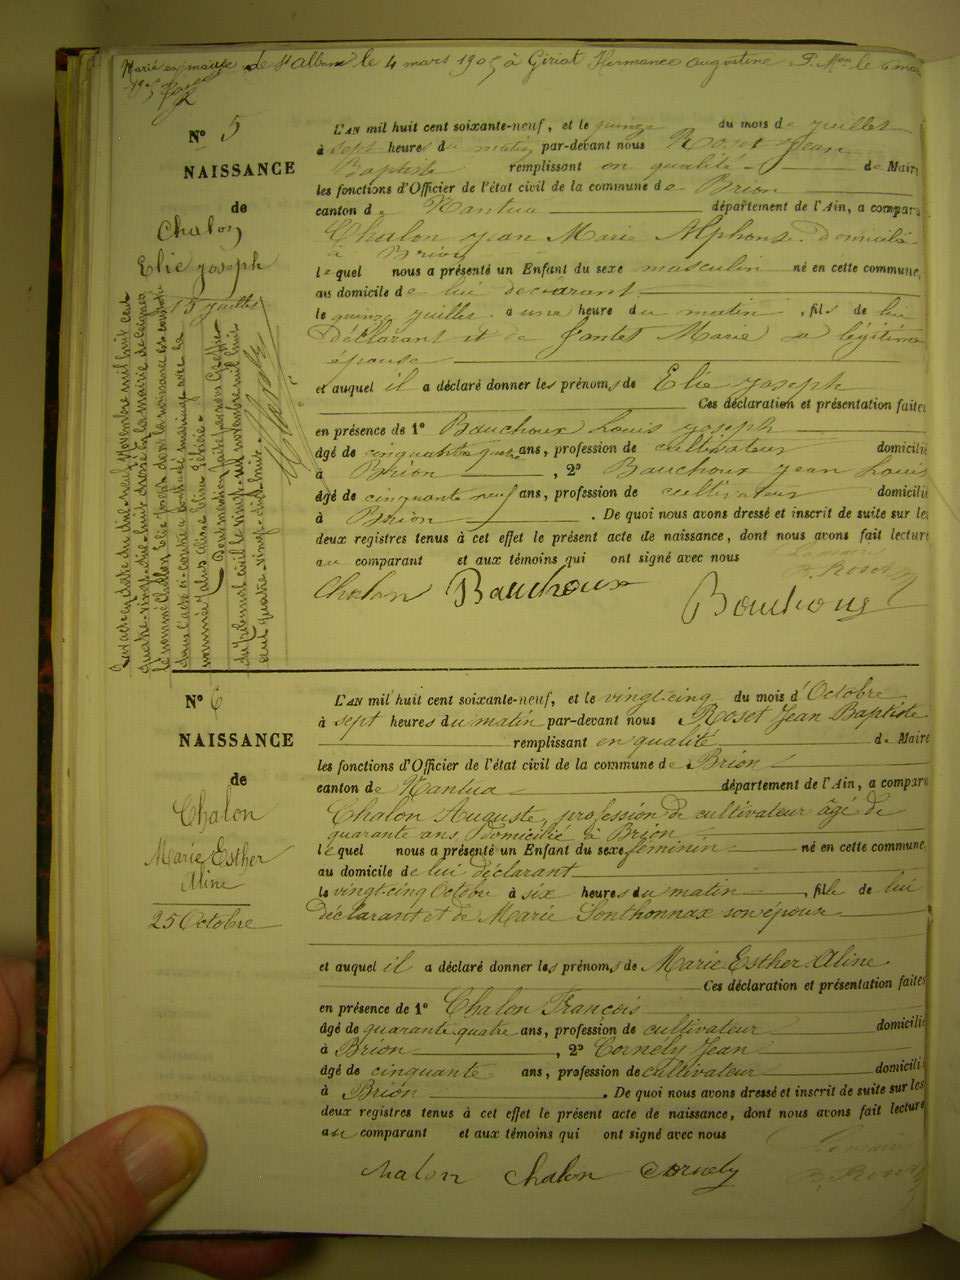 Marié en mairie de St Alban le 4 mars 1905 à Giriat Hermance Augustine P. Mon le 6 mars
1905
Nº 5
NAISSANCE
de
Chalon
Elie Joseph
15 juillet
L'AN mil huit cent soixante-neuf, et le quinze du mois de juillet
à sept heures du matin par-devant nous Roset Jean
Baptiste remplissant en qualité de Maire
les fonctions d'Officier de l'état civil de la commune de Brion
canton de Nantua département de l'Ain, a comparu
Chalon Jean Marie Alphonse domicilié
à Brion
lequel nous a présenté un Enfant du sexe masculin né en cette commune,
au domicile de lui déclarant
le quinze juillet à une heure du matin, fils de lui
déclarant et de Jantet Marie sa légitime
épouse
et auquel il a déclaré donner les prénoms de Elie Joseph
Ces déclaration et présentation faites
en présence de 1º Bauchoux Louis Joseph
âgé de cinquante quatre ans, profession de cultivateur domicilié
à Brion, 2º Bauchoux Jean Louis
âgé de cinquante neuf ans, profession de cultivateur domicilié
à Brion. De quoi nous avons dressé et inscrit de suite sur les
deux registres tenus à cet effet le présent acte de naissance, dont nous avons fait lecture
au comparant et aux témoins qui ont signé avec nous
Chalon Bauchoux Bouchoux
Par acte en date du dix-neuf Novembre mil huit cent
quatre-vingt-dix-huit dressé en la mairie de
le nommé Chalon Elie Joseph dont la naissance est constatée
dans l'acte ci-contre a contracté mariage avec la
nommée
Dont mention faite par nous Greffier
du tribunal civil le vingt-neuf novembre mil huit
cent quatre-vingt-dix-huit.
Nº 6
NAISSANCE
de
Chalon
Marie Esther
Aline
25 Octobre
L'AN mil huit cent soixante-neuf, et le vingt-cinq du mois d'Octobre
à sept heures du matin par-devant nous Roset Jean Baptiste
remplissant en qualité de Maire
les fonctions d'Officier de l'état civil de la commune de Brion
canton de Nantua département de l'Ain, a comparu
Chalon Auguste, profession de cultivateur âgé de
quarante ans domicilié à Brion
lequel nous a présenté un Enfant du sexe féminin né en cette commune
au domicile de lui déclarant
le vingt-cinq Octobre à six heures du matin, fille de lui
déclarant et de Marie Sonthonnax son épouse
et auquel il a déclaré donner les prénoms de Marie Esther Aline.
Ces déclaration et présentation faites
en présence de 1º Chalon François
âgé de quarante quatre ans, profession de cultivateur domicilié
à Brion, 2º Cornely Jean
âgé de cinquante ans, profession de cultivateur domicilié
à Brion. De quoi nous avons dressé et inscrit de suite sur les
deux registres tenus à cet effet le présent acte de naissance, dont nous avons fait lecture
au comparant et aux témoins qui ont signé avec nous
Chalon Chalon Cornely